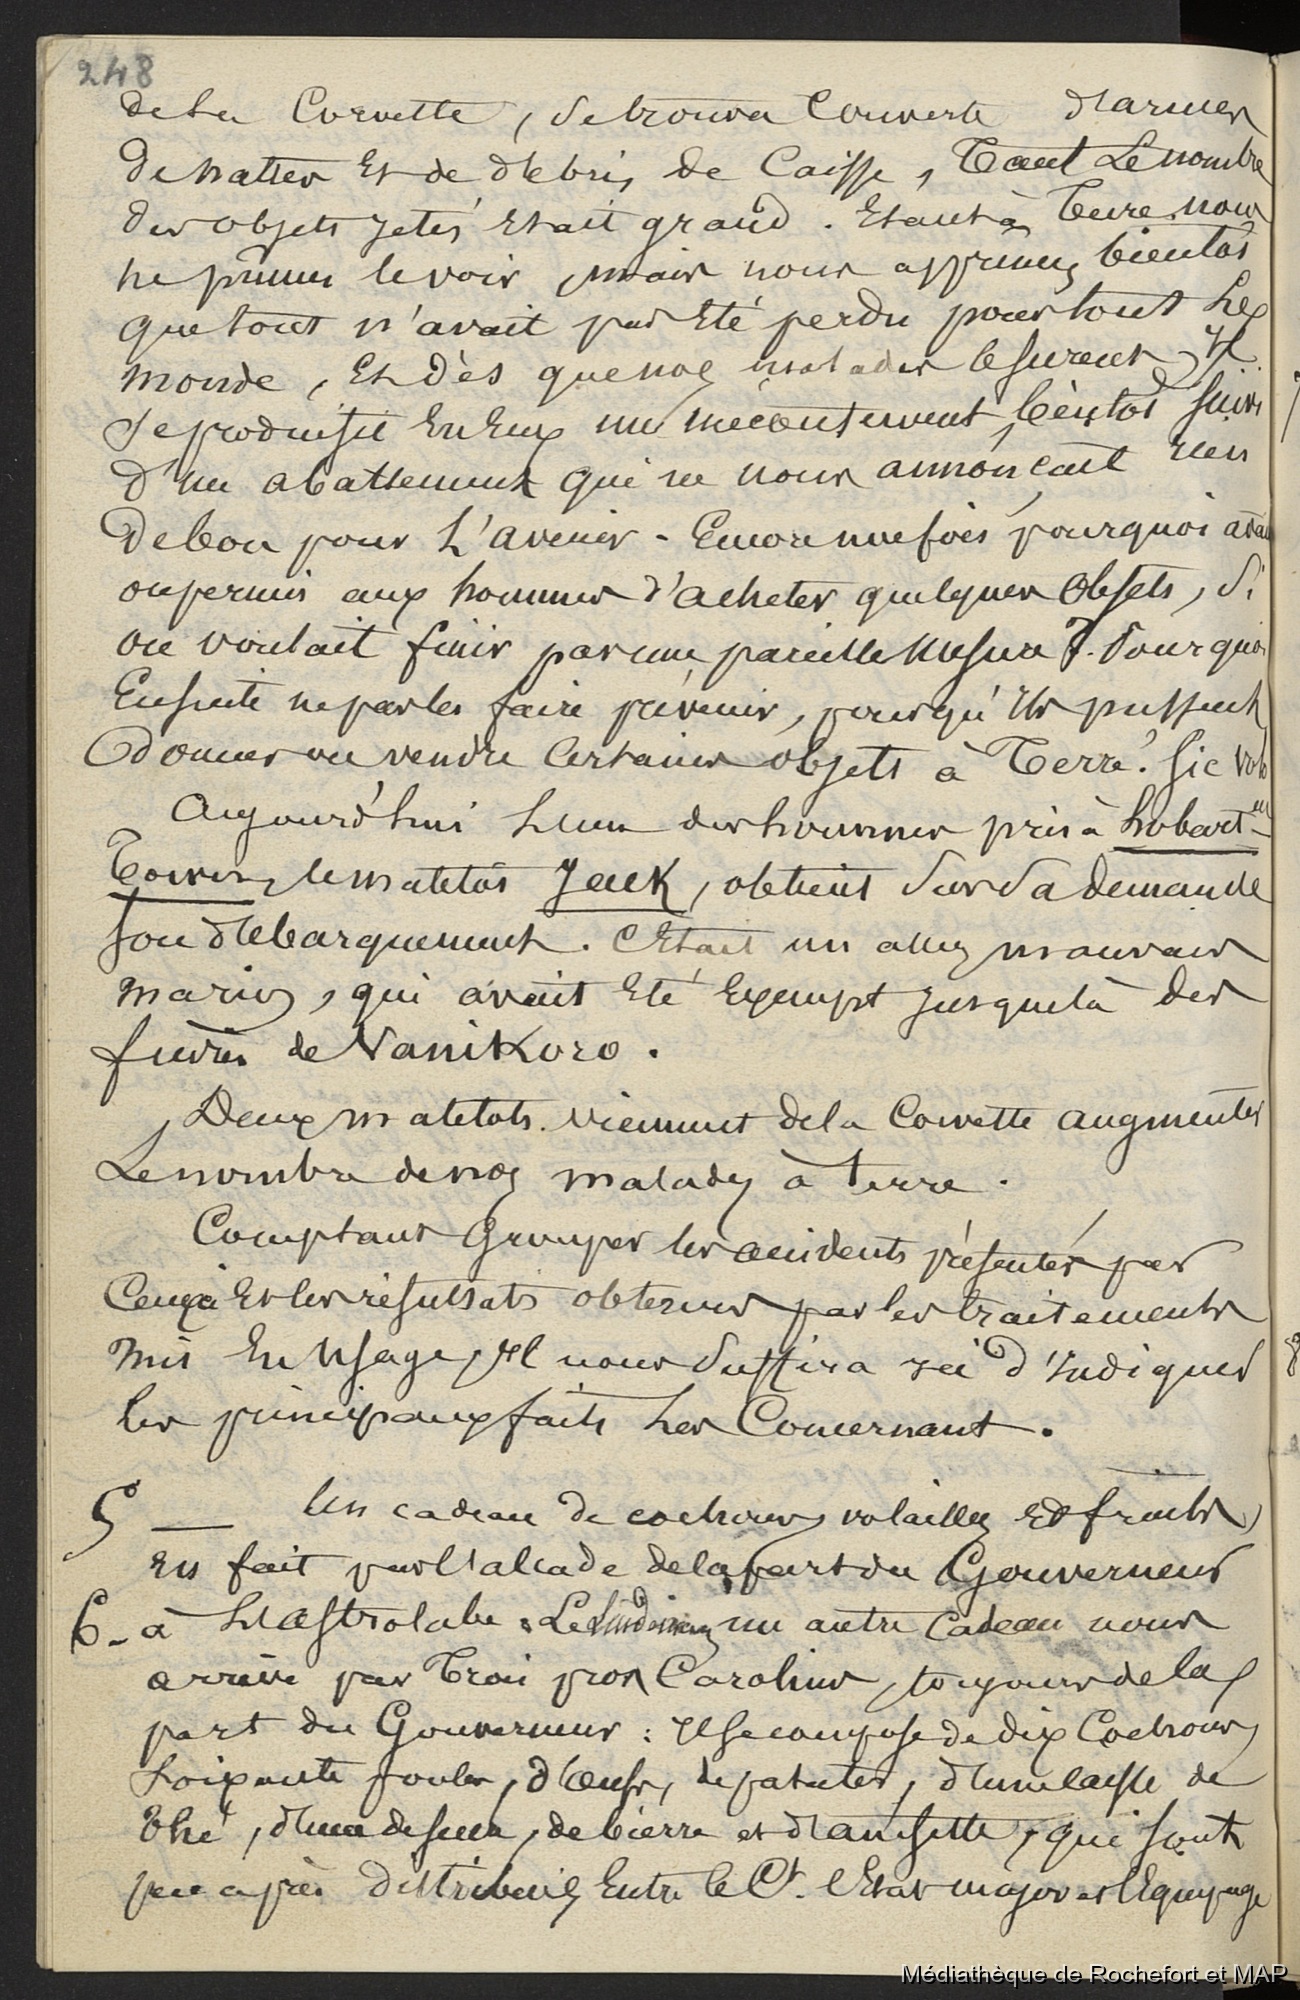 248
de la Corvette, se trouva couverte d'armes
de nattes et de débris de caisse, tant le nombre
des objets jetés était grand. Etant à terre nous
ne pûmes le voir, mais nous apprîmes bientôt
que tout n'avait pas été perdu pour tout le
monde, et dès que nos malades le surent, il
se produisit en eux un mécontentement, bientôt suivi
d'un abattement qui ne nous annonçait rien
de bon pour l'avenir. Encore une fois pourquoi avait
on permis aux hommes d'acheter quelques objets, si
on voulait finir par une pareille mesure ?. Pourquoi
ensuite ne pas les faire prévenir, pour qu'ils pussent
donner ou vendre certains objets à terre. Sic volo
Aujourd'hui l'un des hommes pris à hobart-
Town, le matelot Jack, obtient sur sa demande
son débarquement. C'était un assez mauvais
marin, qui avait été exempt jusque là des
fièvres de Vanikoro.
Deux matelots viennent de la Corvette augmenter
le nombre de nos malades à terre.
Comptant grouper les accidents présentés par
ceux-ci et les résultats obtenus par les traitements
mis en usage, il nous suffira ici d'indiquer
les principaux faits les concernant.
5 — Un cadeau de cochons, volailles et fruits,
est fait par l'alcade de la part du Gouverneur
6 - à l'Astrolabe. Le lendemain un autre cadeau nous
arrive par trois pros Carolins, toujours de la
part du Gouverneur : il se compose de dix cochons,
soixante poules, d'oeufs, de patates, d'une caisse de
thé, d'une de sucre, de bierre et d'anisette, qui sont
peu après distribués entre le Ct. l'Etat major et l'équipage
Médiathèque de Rochefort et MAP